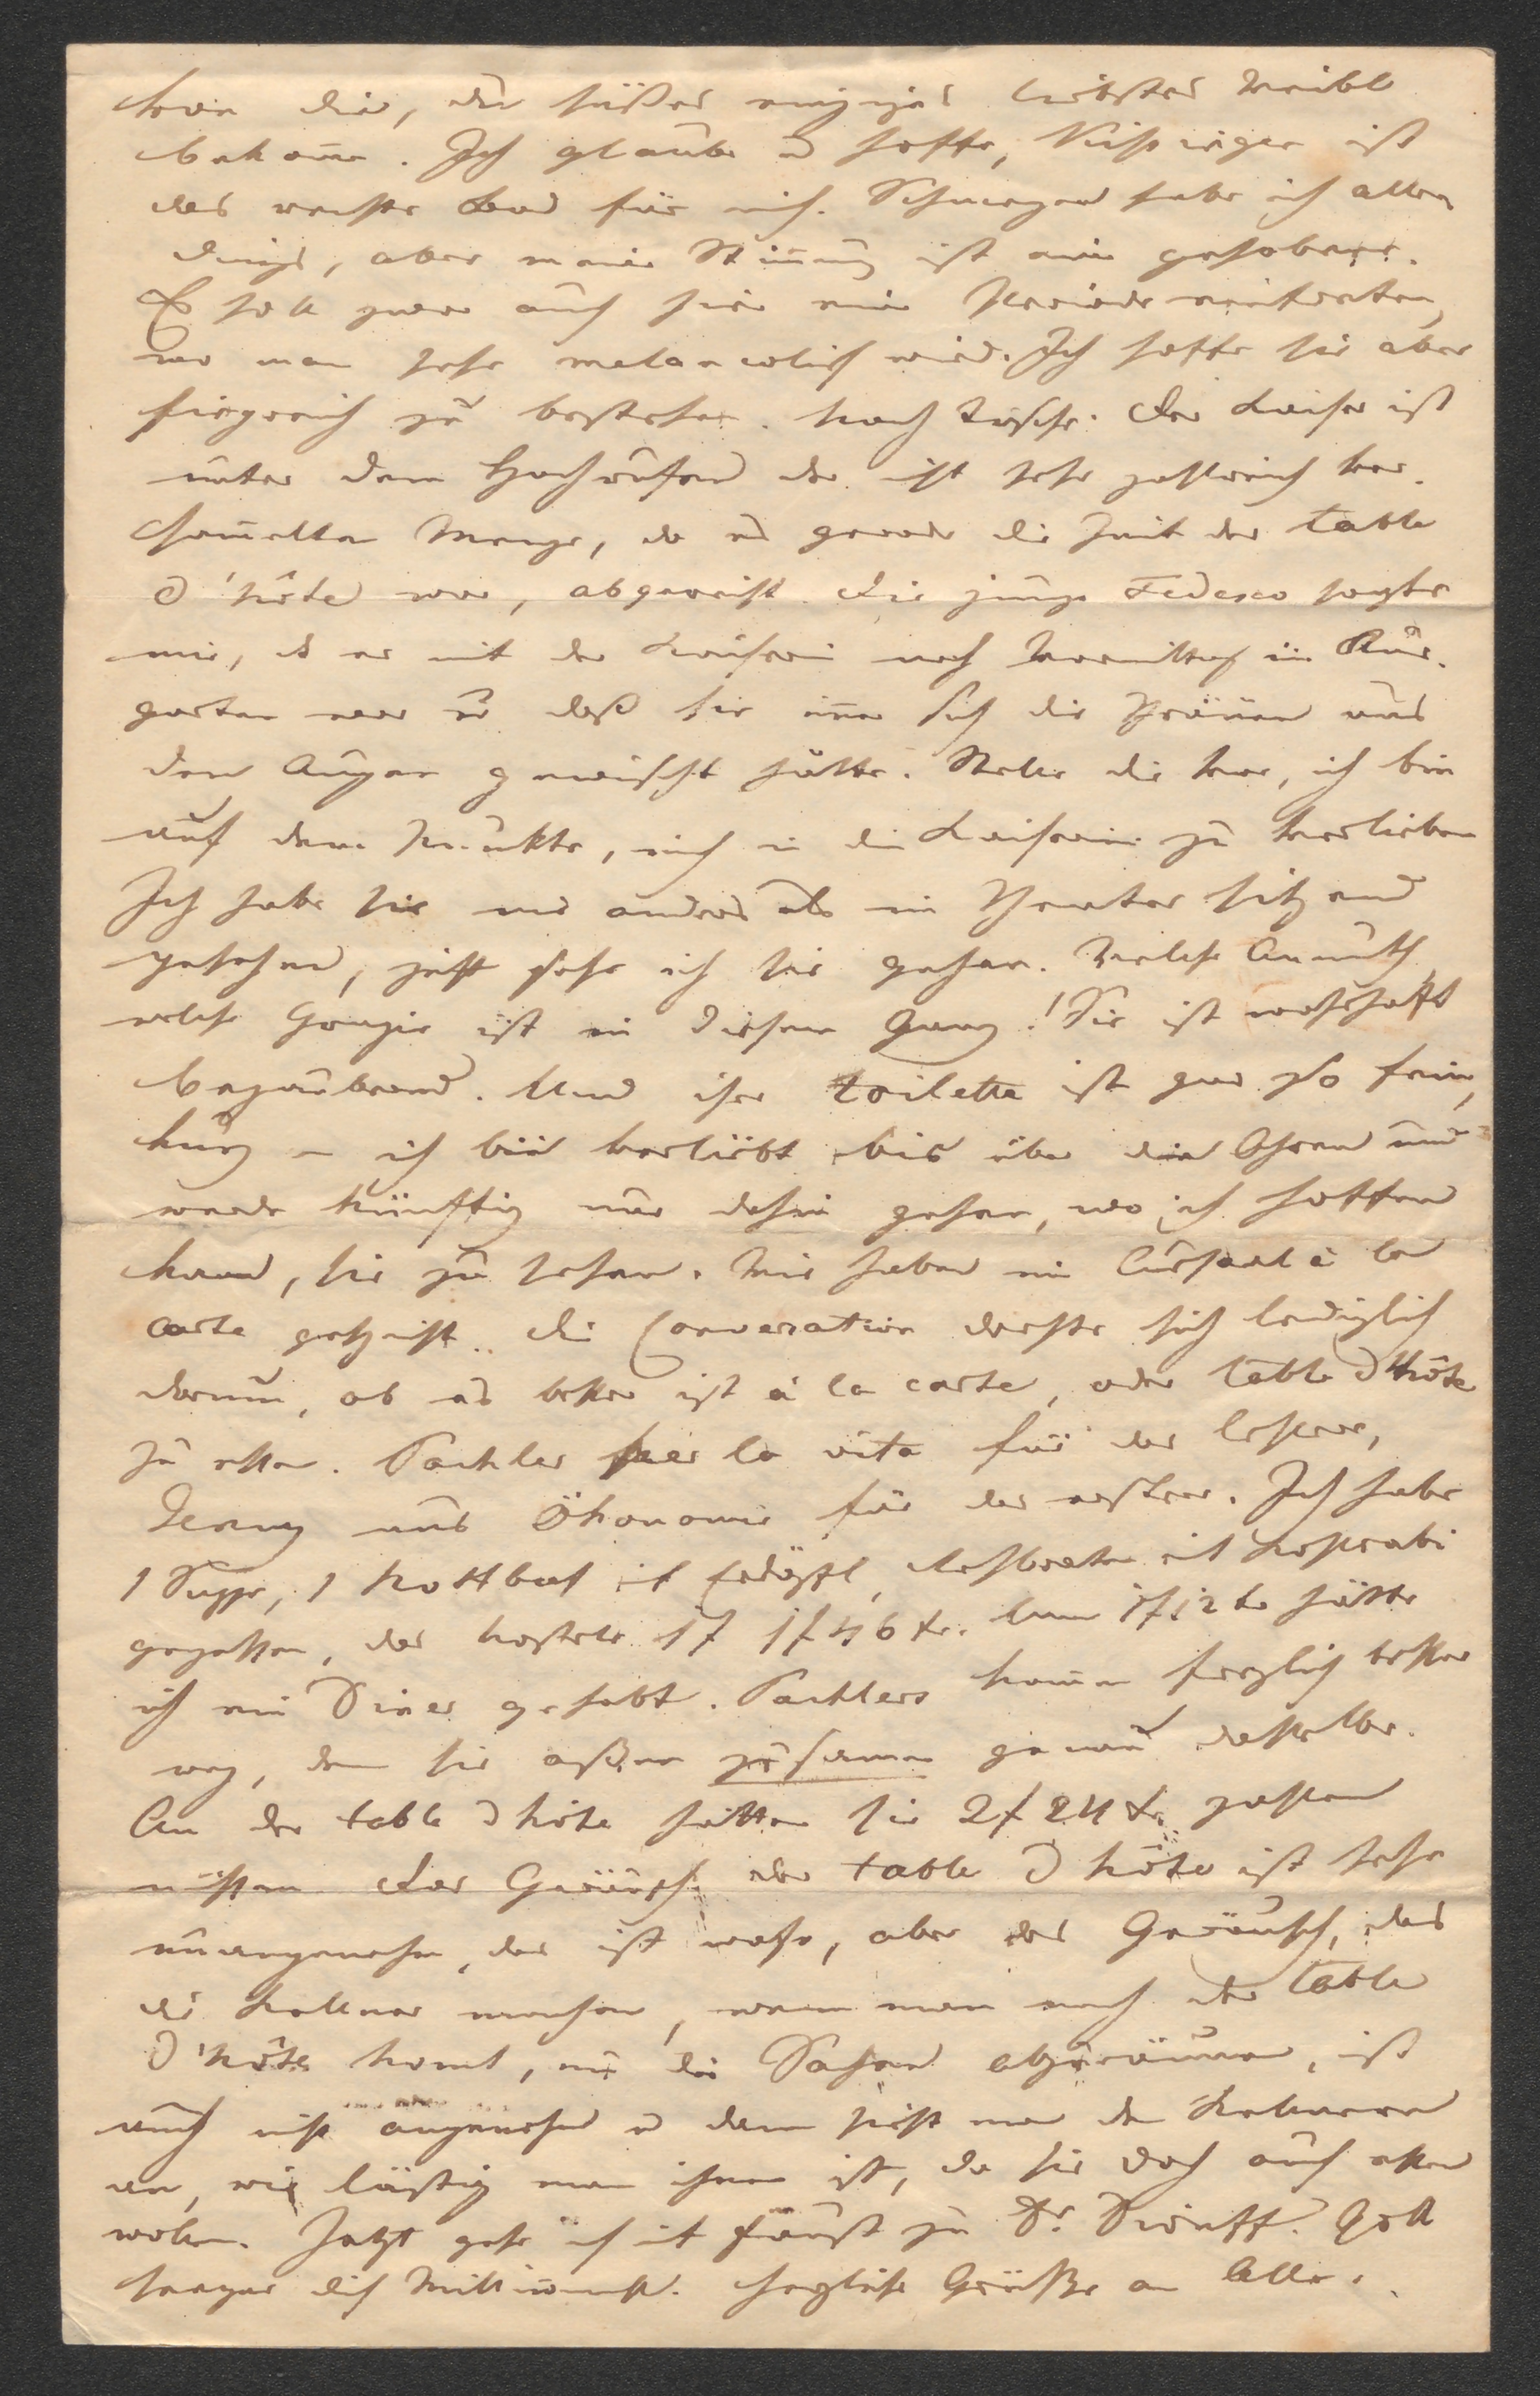 von dir, du süßes einziges liebstes Weibl
bekome. Ich glaube u hoffe, Kissingen ist
das rechte Bad für mich. Schmerzen habe ich aller
dings, aber meine Stimung ist eine gehobene.
Es soll zwar auch hier eine Periode eintreten,
wo man sehr melancolisch wird. Ich hoffe sie aber
siegreich zu bestehen. Nach Tische. Der Kaiser ist
unter dem Hochrufen der nicht sehr zahlreich ver
sammelten Menge, da es gerade die Zeit der table
d'hôte war, abgereist. Die junge Tedesco sagte
mir, daß er mit der Kaiserin noch Vormittag im Kur
garten war u daß sie imer sich die Thränen aus
den Augen gewischt hätte. Stelle dir vor, ich bin
auf dem Punkte, mich in die Kaiserin zu verlieben
Ich habe sie nie anders als im Theater sitzend
gesehen, jetzt sehe ich sie gehen. Welche Anmuth,
welche Grazie ist in diesem Gang! Sie ist wahrhaft
bezaubernd. Und ihre toilette ist gar so fein,
kurz – ich bin verliebt bis über die Ohren und
werde künftig nur dahin gehen, wo ich hoffen
kann, sie zu sehen. Wir haben im Cursaal à la
carte gespeist. Die Converation drehte sich lediglich
darum, ob es besser ist à la carte, oder table d'hôte
zu essen. Pachler per la vita für das letztere,
Jenny aus Ökonomie für das erstere. Ich habe
1 Suppe, 1 Rostbeef mit Erdäpfl, Rehbraten mit Kohlrabi
gegessen, das kostete 1f 46 kr. Um 1f 12 kr hätte
ich ein Diner gehabt. Pachlers kamen freilich besser
weg, den sie aßen zusamen genau dasselbe.
An der table d'hôte hätten sie 2f 24 kr zahlen
müssen. Das Geräusch der table d'hôte ist sehr
unangenehm, das ist wahr, aber das Geräusch, das
die Kellner machen, wenn man nach der table
d'hôte komt, um die Sachen abzuräumen, ist
auch nicht angenehm u dann sieht man den Kellnern
an, wie lästig man ihnen ist, da sie doch auch essen
wollen. Jetzt gehe ich mit Faust zu Dr. Diruff. Gott
segne dich Millionenmal. Herzliche Grüße an Alle.